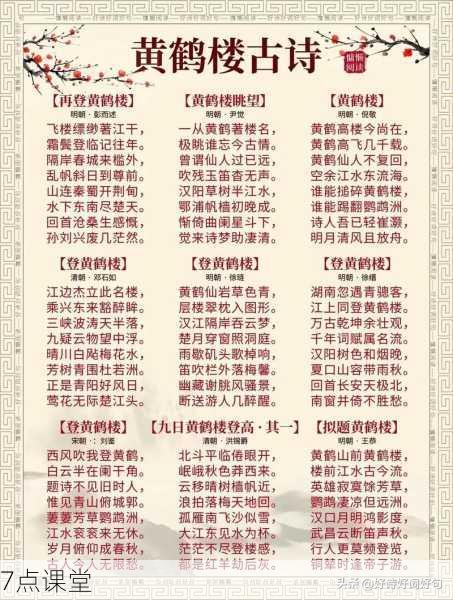 黄鹤楼古诗
慵懒
阅读
【再登黄鹤楼】
明朝·彭而述
飞楼缥缈著江干，
霜鬓登临记往年。
隔岸春城来槛外，
乱帆斜日到尊前。
山连秦蜀开荆甸，
水下东南尽楚天。
回首沧桑生感慨，
孙刘兴废几茫然。
【黄鹤楼眺望】
明朝·尹觉
一从黄鹤著楼名，
极眺谁忘今古情。
曾谓仙人过已远，
吹残玉笛杳无声。
汉阳草树半江水，
鄂浦帆樯初晚成。
惭倚曲阑星斗下，
觉来诗梦助凄清。
【黄鹤楼】
明朝·倪敬
黄鹤高楼今尚在，
黄鹤高飞几千载。
黄鹤仙人不复回，
空余江水东流海。
谁能搥碎黄鹤楼，
谁能踢翻鹦鹉洲。
诗人吾已轻崔灏，
明月清风且放舟。
【登黄鹤楼】
清朝·邓石如
江边杰立此名楼，
乘兴东来豁醉眸。
三峡波涛天半落，
九疑云物望中浮。
晴川白飐梅花水，
芳树青围杜若洲。
正是青阳好风日，
莺花无际楚江头。
【登黄鹤楼】
明朝·徐琏
黄鹤仙岩草色青，
层楼翠枕入图形。
汉江隔岸吞云梦，
楚月穿窗照洞庭。
雨歇矶头歌棹响，
笛吹栏外落梅馨。
幽藏谢朓风骚景，
断送游人几醉醒。
【登黄鹤楼】
明朝·徐缙
湖南忽遇青骢客，
江上同登黄鹤楼。
万古乾坤余壮观，
千年词赋属名流。
汉阳树色和烟晚，
夏口山容带雨秋。
回首长安天极北，
南窗并倚不胜愁。
【登黄鹤楼】
宋朝·：刘鉴
西风吹我登黄鹤，
白云半在阑干角。
题诗不见旧时人，
惟见青山俯城郭。
萋萋芳草鹦鹉洲，
江水衮衮来无休。
岁月俯仰成春秋，
古人今人无限愁。
【九日黄鹤楼登高·其一】
清朝·洪锡爵
北斗平临倦眼开，
岷峨秋色莽西来。
云移晴树樯帆近，
浪拍落梅天地回。
孤雁南飞沙似雪，
大江东见水为杯。
茫茫不尽登楼感，
都是红羊劫后灰。
【拟题黄鹤楼】
明朝·王恭
黄鹤山前黄鹤楼，
楼前江水古今流。
英雄寂寞馀芳草，
鹦鹉凄凉但远洲。
汉口月明鸿影度，
武昌云断笛声秋。
行人更莫频登览，
铜辇时逢帝子游。
7点课堂
头条 @好诗好词好句